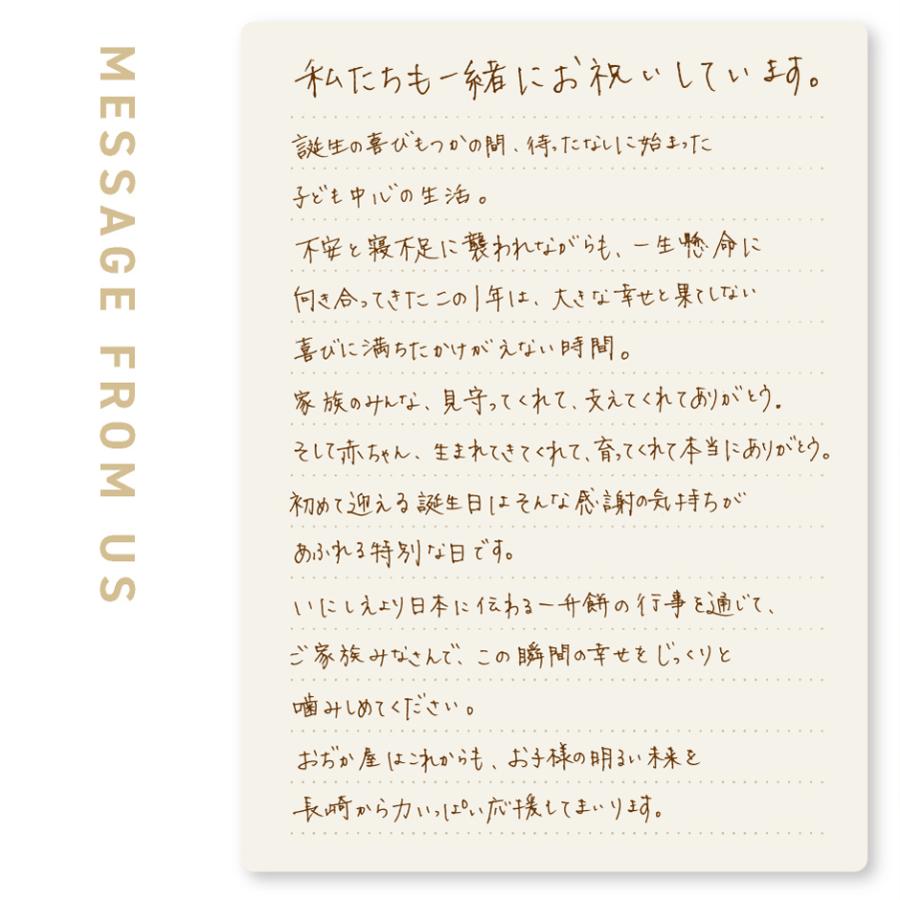 MESSAGE FROM US
私たちも一緒にお祝いしています。
誕生の喜びもつかの間、待ったなしに始まった
子ども中心の生活。
不安と寝不足に襲われながらも、一生懸命に
向き合ってきたこの1年は、大きな幸せと果てしない
喜びに満ちたかけがえない時間。
家族のみんな、見守ってくれて、支えてくれてありがとう。
そして赤ちゃん、生まれてきてくれて、育ってくれて本当にありがとう。
初めて迎える誕生日はそんな感謝の気持ちが
あふれる特別な日です。
いにしえより日本に伝わる一升餅の行事を通じて、
ご家族みなさんで、この瞬間の幸せをじっくりと
噛みしめてください。
おぢか屋はこれからも、お子様の明るい未来を
長崎から力いっぱい応援してまいります。